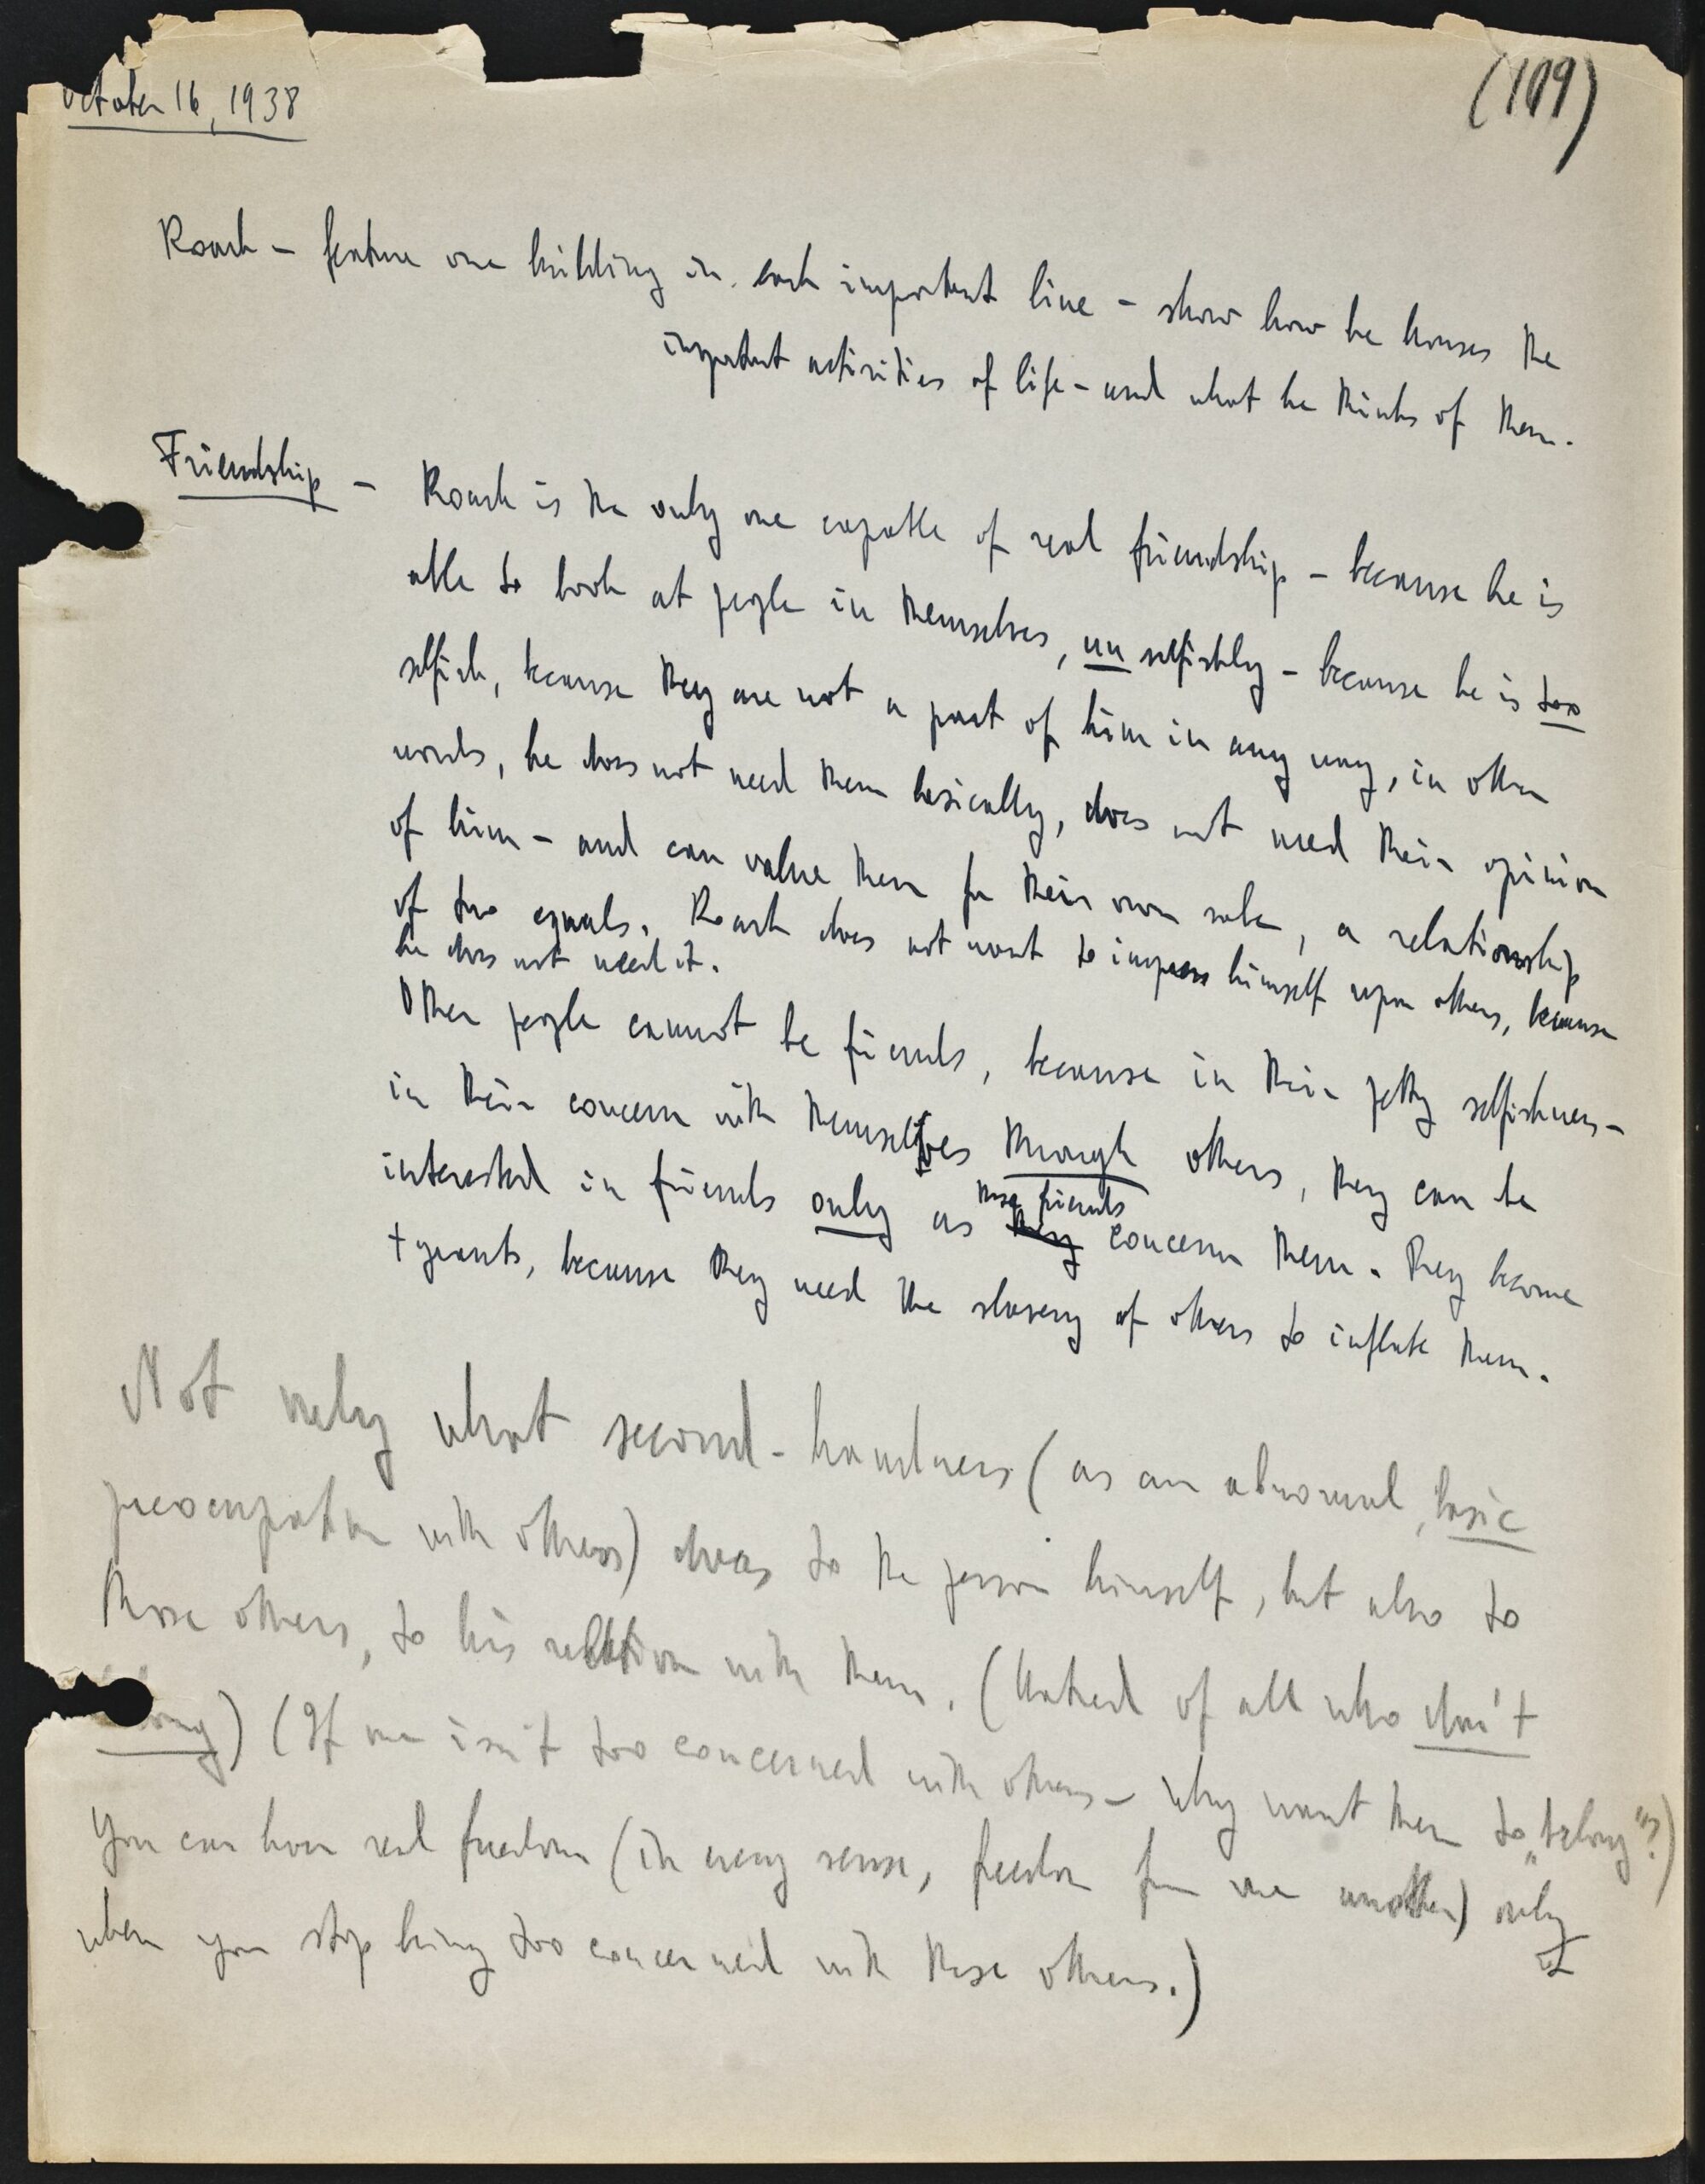 October 16, 1938
(109)
Roark – feature one building in each important line – show how he houses the
important activities of life – and what he thinks of them.
Friendship – Roark is the only one capable of real friendship – because he is
able to look at people in themselves, unselfishly – because he is too
selfish, because they are not a part of him in any way, in other
words, he does not need them basically, does not need their opinion
of him – and can value them for their own sake, a relationship
of two equals. Roark does not want to impress himself upon others, because
he does not need it.
Other people cannot be friends, because in their petty selfishness –
in their concern with themselves through others, they can be
interested in friends only as those friends concern them. They become
tyrants, because they need the slavery of others to inflate them.
Not only what second-handness (as an abnormal, basic
preocupation with others) does to the person himself, but also to
those others, to his relation with them. (Hatred of all who don't
belong) (If one isn't too concerned with others – why want them to „belong"?)
You can have real freedom (in every sense, freedom from one another) only
when you stop being too concerned with those others.)